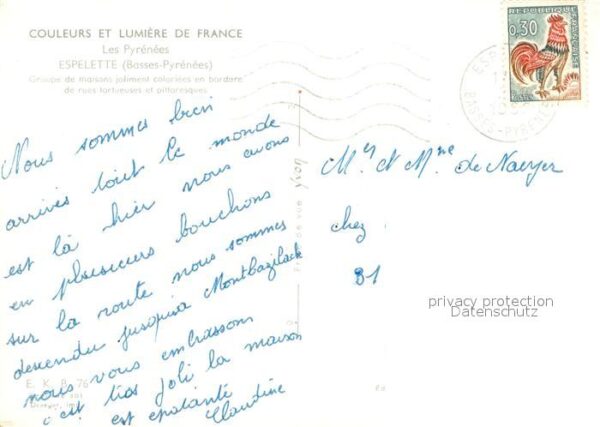 COULEURS ET LUMIÈRE DE FRANCE
Les Pyrénées
ESPELETTE (Basses-Pyrénées)
Groupe de maisons joliment coloriées en bordure
de rues tortueuses et pittoresques
Nous sommes bien
arrivés tout le monde
est là hier nous avons
eu plusieurs bouchons
sur la route nous sommes
descendu jusqu'à Montbazilack
nous vous embrassons
c'est très joli la maison
est épatante
Claudine
E. K. B. 76
REPUBLIQUE FRANÇAISE
0,30
BASSES-PYRENEES
Mr et Mme de Naeyer
chez
81
privacy protection
Datenschutz